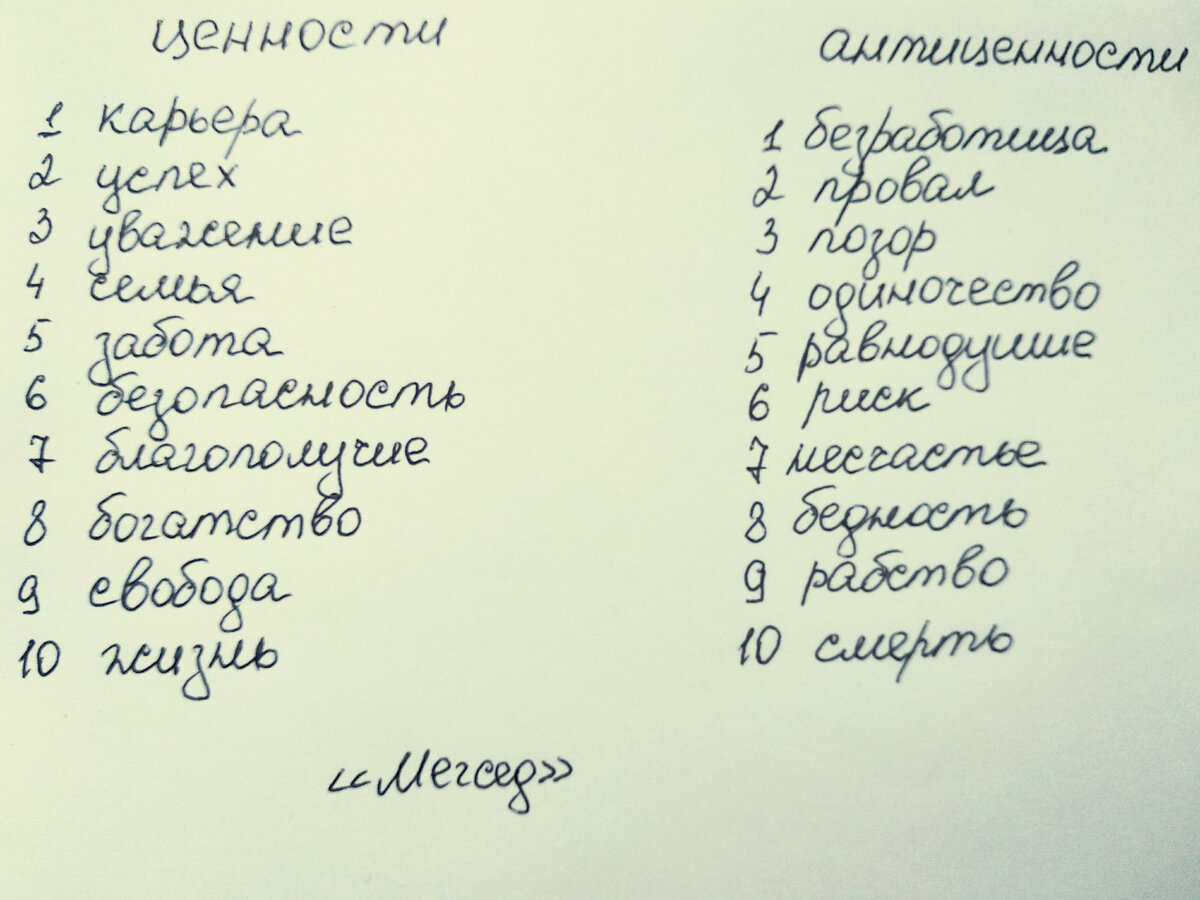 ценности
1 карьера
2 успех
3 уважение
4 семья
5 забота
6 безопасность
7 благополучие
8 богатство
9 свобода
10 жизнь
антиценности
1 безработица
2 провал
3 позор
4 одиночество
5 равнодушие
6 риск
7 несчастье
8 бедность
9 рабство
10 смерть
«Мегсед»